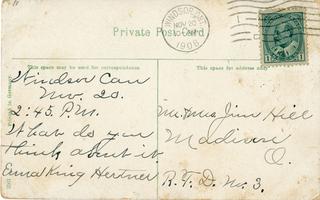 WINDSOR, ONT.
NOV 20
1908
Private Post Card
This space may be used for correspondence
This space may be used for address only
Windsor Can
Nov. 20.
2:45. P.M.
What do you
think about it.
Erma King Hertner
Mr. Mrs Jim Hill
Madison
O.
R. F. D. No. 3.